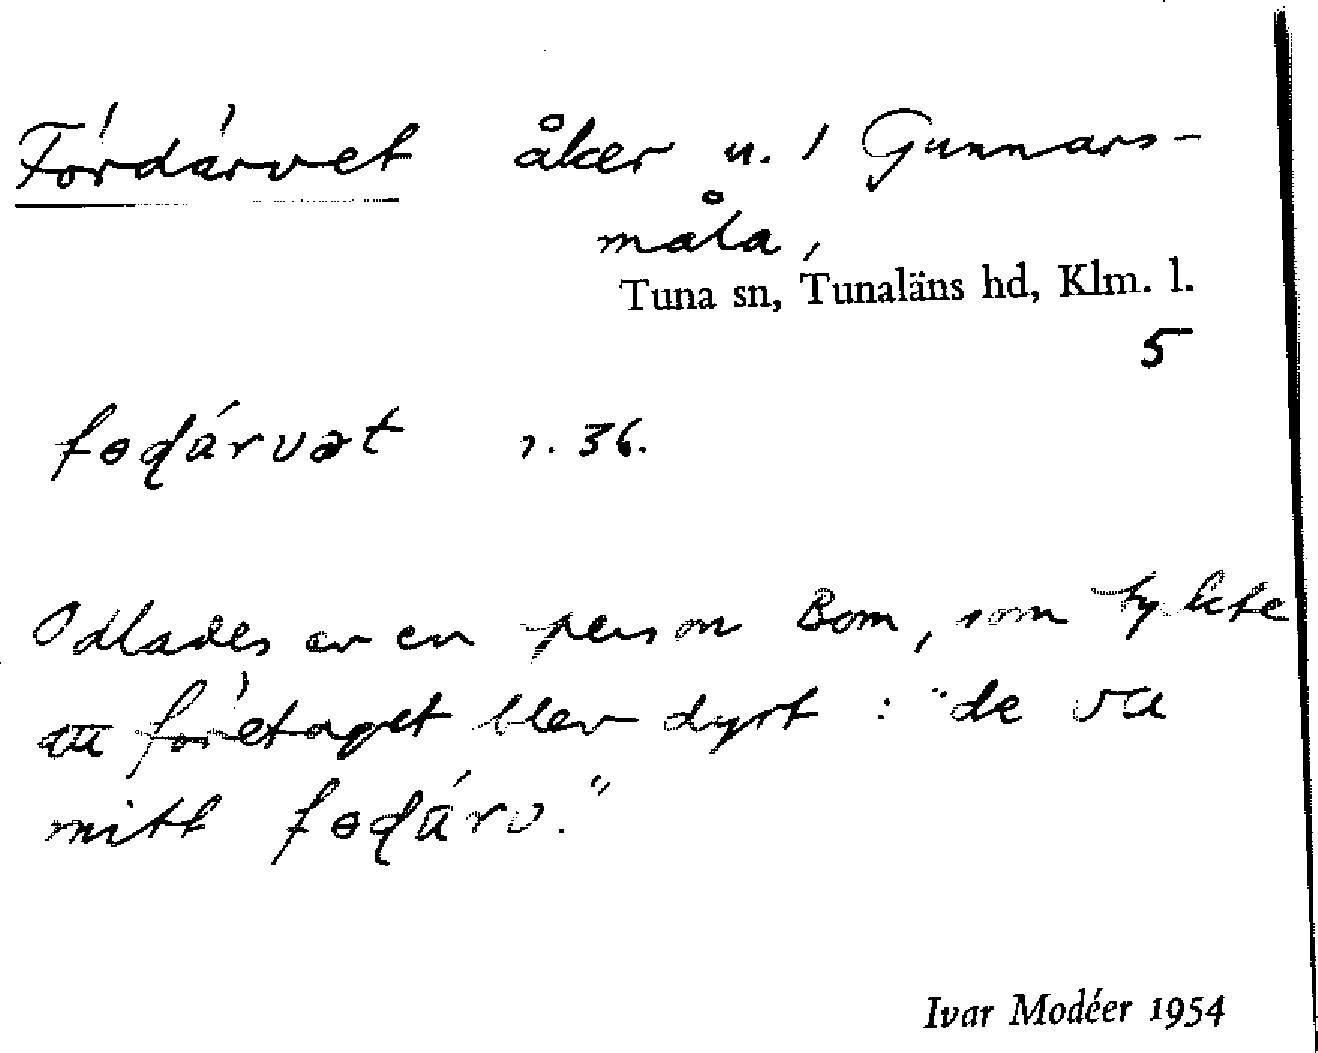 Fördärvet åker u. 1 Gunnars-
måla,
Tuna sn, Tunaläns hd, Klm. l.
5
fɵɖárvət 1. 36.
Odlades av en person Bom, som tyckte
att företaget blev dyrt : "de va
mitt fɵɖárv."
Ivar Modéer 1954